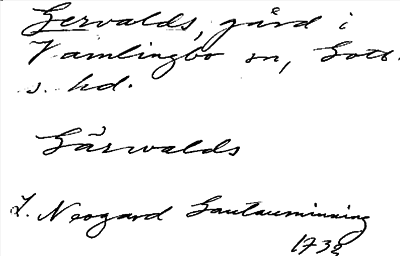 Gervalds, gård i
Vamlingbo sn, Gotl.
s. hd.
Gärvalds
L. Neogard Gautauminning
1732